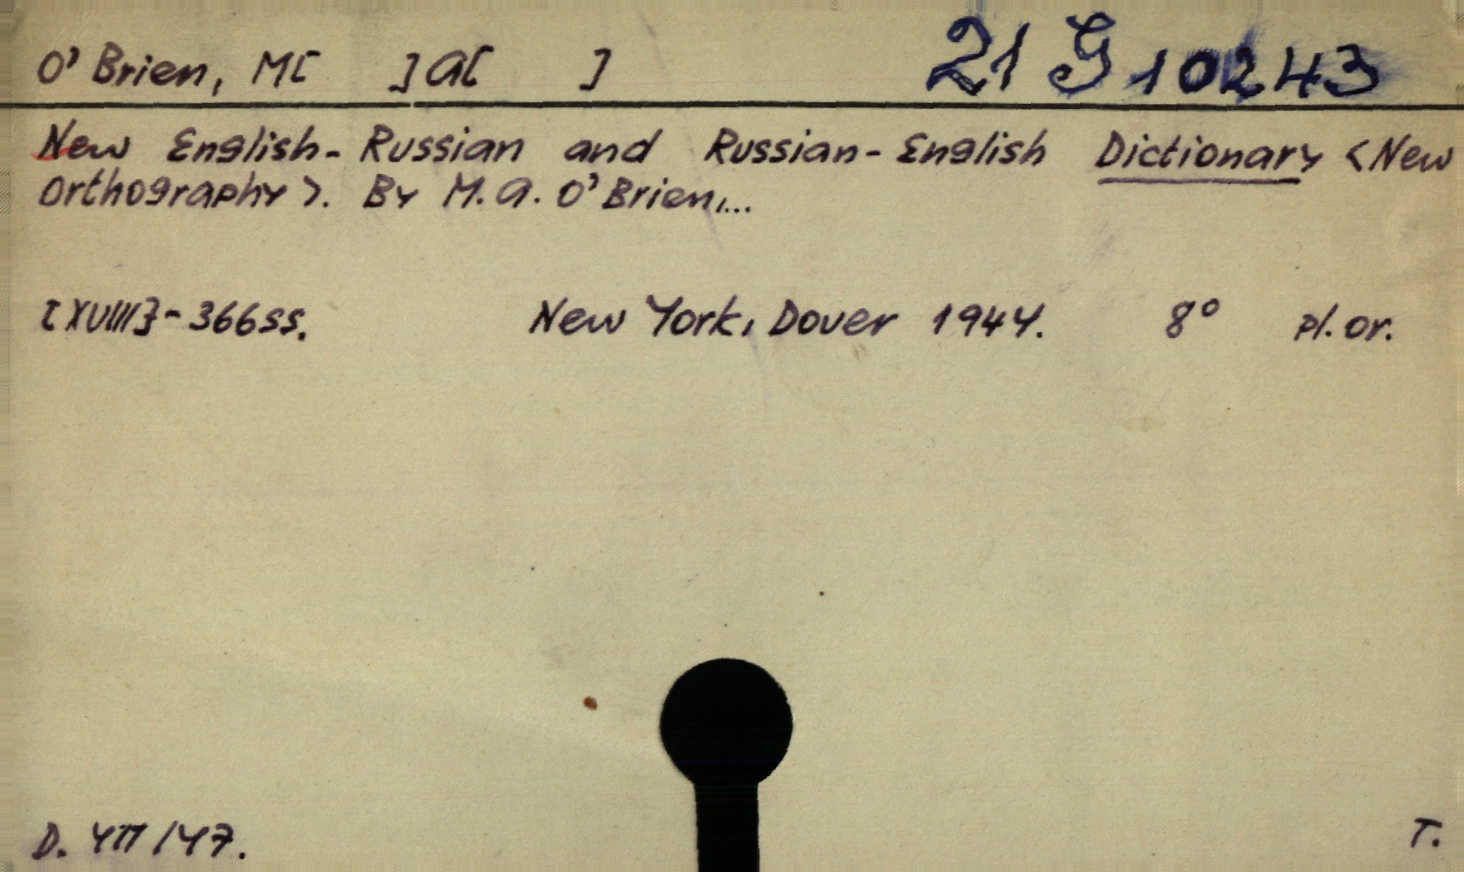 O' Brien, M[ ] A[ ] 21 G 10243
New English-Russian and Russian-English Dictionary <New
Orthography>. By M. A. O'Brien,...
[XVIII]-366ss. New York, Dover 1944. 8° pl. or.
D. /47.
T.